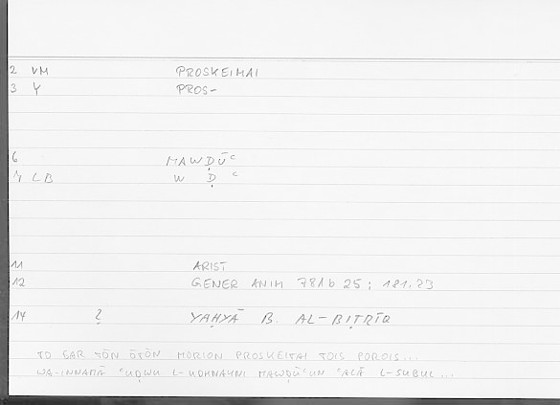 2 VM PROSKEIMAI
3 Y PROS-
6 MAWḌŪʿ
7 LB W Ḍ ʿ
11 ARIST
12 GENER ANIM 781b 25 ; 181.23
14 ? YAḤYĀ B. AL-BIṬRĪQ
TO GAR TŌN ŌTŌN MORION PROSKEITAI TOIS POROIS...
WA-INNAMĀ ʿUḌWU L-UḎNAYNI MAWḌŪʿUN ʿALĀ L-SUBUL...